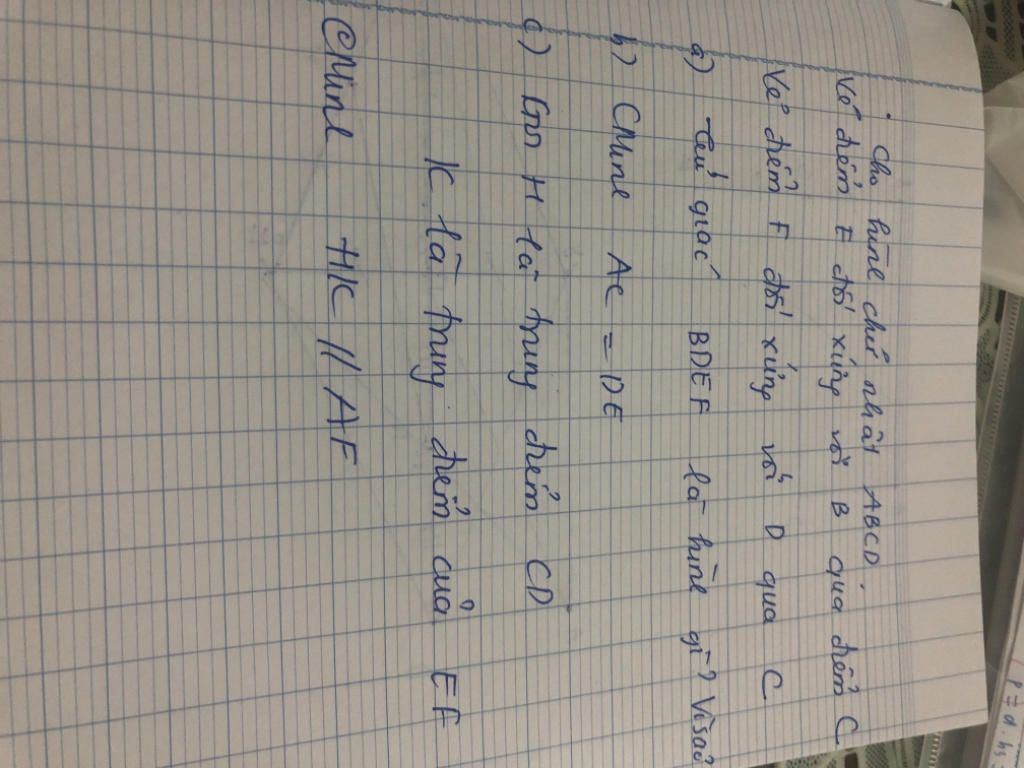 Cho hình chữ nhật ABCD.
Vẽ điểm E đối xứng với B qua điểm C
Vẽ điểm F đối xứng với D qua C
a) Tứ giác BDEF là hình gì? Vì sao
b) CMinh AC = DE
c) Gọi H là trung điểm CD
K là trung điểm của EF
CMinh HK // AF